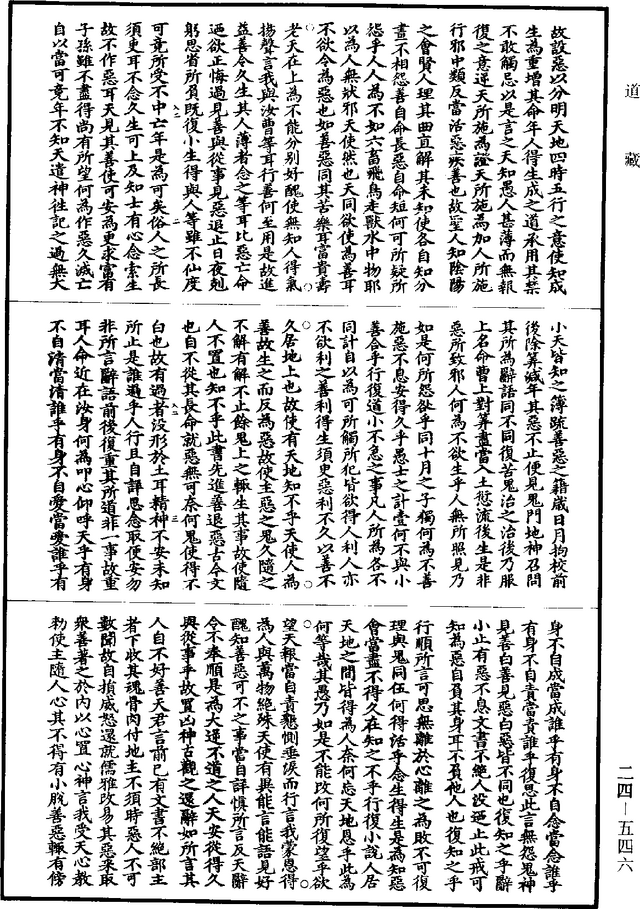 道藏
故設惡以分明天地四時五行之意使知成
生為重增其命年人得生成之道承用其禁
不敢觸忌以是言之天知愚人甚薄而無報
復之意逆天所施為證天所施為加人所施
行邪中類反當活惡疾善也故聖人知陰陽
之會賢人理其曲直解其未知使各自知分
畫不相怨善自命長惡自命短何可所疑所
怨乎人人為不如六畜飛鳥走獸水中物耶
以為人無狀邪天使然也天同欲使為善耳
不欲令為惡也如善惡同其苦樂耳富貴壽
老天在上為不能分別好醜使無知人得氣
揚聲言我與汝曹等耳行善何至用是故進
益善令久生其人薄者念之等耳比惡亡命
逼欲正悔過見善與從事見惡退止日夜剋
躬思省所負既復小生得與人等雖不仙度
可竟所受不中亡年是為可矣俗人之所長
須更耳不念久生可上及知士有心念索生
故不作惡耳天見其善使可安為更求富有
子孫雖不盡得尚有所望何為作惡久滅亡
自以當可竟年不知天遣神往記之過無大
小天皆知之簿疏善惡之籍歲日月拘校前
後除算減年其惡不止便見鬼門地神召問
其所為辭語同不同復苦鬼治之治後乃服
上名命曹上對筭盡當入土愆流後生是非
惡所致邪人何為不欲生乎人無所照見乃
如是何所怨欲乎同十月之子獨何為不善
施惡不息安得久乎愚士之計壹何不與小
善合乎行復道小不急之事凡人所為各不
同計自以為可所觸所犯皆欲得人利人亦
不欲利之善利得生須臾惡利不久以善不
久居地上也故使有天地知不乎天使人為
善故生之而反為惡故使主惡之鬼久隨之
不解有解不止餘鬼上之輒生其事故使隨
人不置也知不乎此書先進善退惡古今文
也自不從其長命就惡無可柰何鬼使得不
白也故有過者沒形於土耳精神不安未知
所止是誰過乎人行且自詳思念取便安勿
非所言辭語前後復重其所道非一事故重
耳人命近在汝身何為叩心仰呼天乎有身
不自清當清誰乎有身不自愛當愛誰乎有
身不自成當成誰乎有身不自念當念誰乎
有身不自責當責誰乎復思此言無怨鬼神
見善白善見惡白惡皆不同也復知之乎辭
小止有惡不息文書不絕人沒迺止此戒可
知為惡自負其身耳不負他人也復知之乎
行順所言可思無離於心離之為敗不可復
理與鬼同伍何得活乎念生得生是為知惡
會當盡不得久在知之不乎行復小說人居
天地之間皆得為人柰何忘天地恩乎此為
何等哉其愚乃如是不能改何所復望乎欲
望天報當自責懇惻垂淚而行言我蒙恩得
為人與萬物絕殊天使有異能言能語見好
醜知善惡可不之事當自詳慎所言反天辭
令不奉順是為大逆不道之人天安從得久
與從事乎故置凶神古觀之還辭如所言其
人自不好善天君言前已有文書不絕部主
者下收其魂骨肉付地主不須時惡人不可
數聞故自損威怒還就儒雅改易其惡采取
眾善著之於內以心置心神言我受天心教
勑使主隨人心其不得有小脫善惡輒有傍
二四—五四六